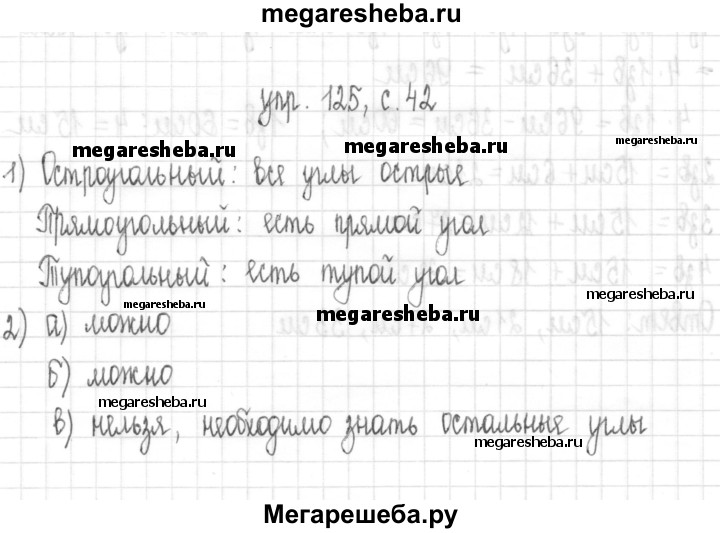 megaresheba.ru
упр. 125, с. 42
megaresheba.ru
megaresheba.ru
megaresheba.ru
1) Остроугольный: все углы острые
Прямоугольный: есть прямой угол
Тупоугольный: есть тупой угол
megaresheba.ru
megaresheba.ru
megaresheba.ru
2) а) можно
б) можно
megaresheba.ru
в) нельзя, необходимо знать остальные углы
megaresheba.ru
Мегарешеба.ру